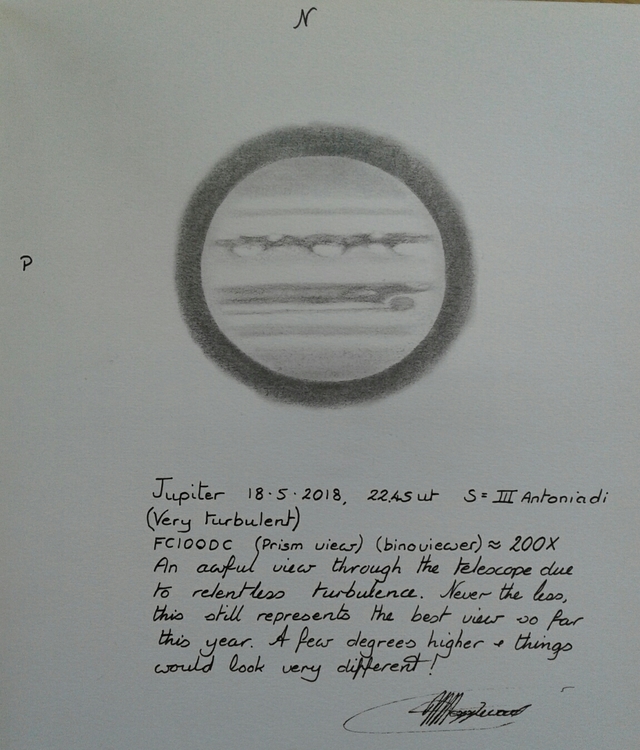 N
P
Jupiter 18.5.2018, 22.45ut S= III Antoniadi
(Very turbulent)
FC100DC (Prism view) (binoviewer) ≈ 200X
An awful view through the telescope due
to relentless turbulence. Never the less,
this still represents the best view so far
this year. A few degrees higher & things
would look very different!